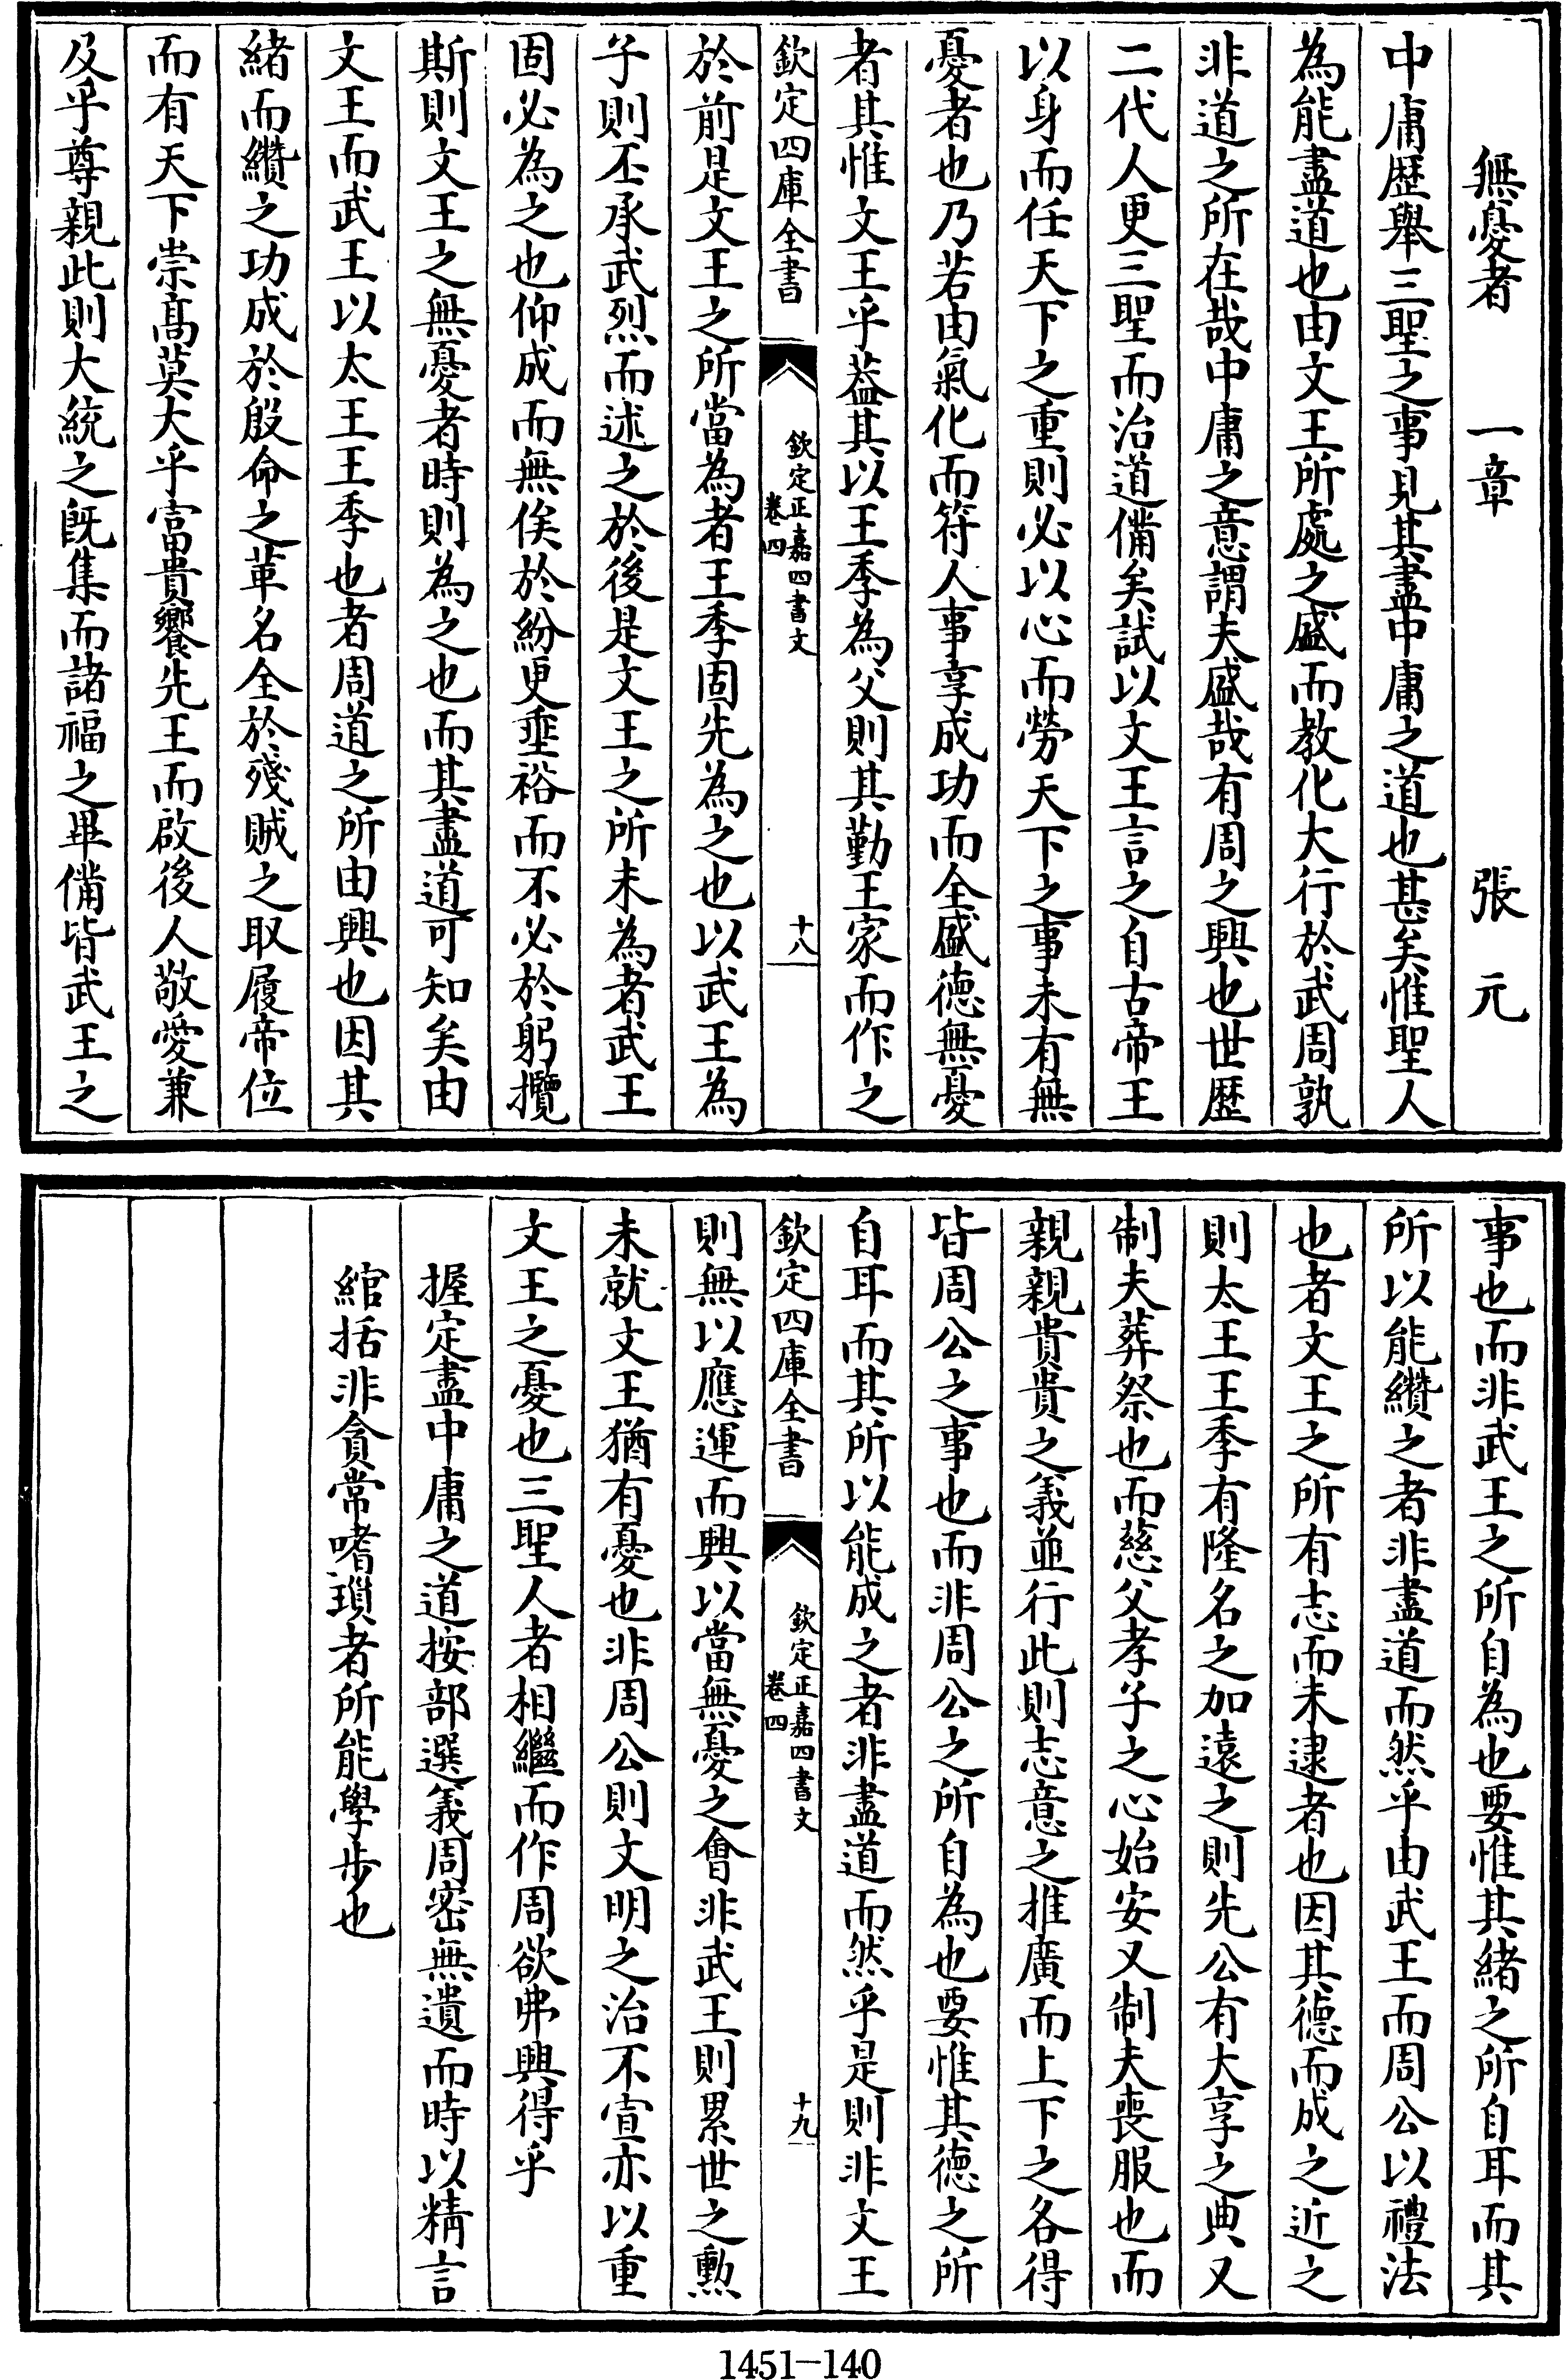 無憂者　一章　張元
中庸歴舉三聖之事見其盡中庸之道也甚矣惟聖人
為能盡道也由文王所處之盛而教化大行於武周孰
非道之所在哉中庸之意謂夫盛哉有周之興也世歴
二代人更三聖而治道備矣試以文王言之自古帝王
以身而任天下之重則必以心而勞天下之事未有無
憂者也乃若由氣化而符人事享成功而全盛德無憂
者其惟文王乎葢其以王季為父則其勤王家而作之
欽定四庫全書
欽定正嘉四書文
卷四
十八
於前是文王之所當為者王季固先為之也以武王為
子則丕承武烈而述之於後是文王之所未為者武王
固必為之也仰成而無俟於紛更垂裕而不必於躬攬
斯則文王之無憂者時則為之也而其盡道可知矣由
文王而武王以太王王季也者周道之所由興也因其
緒而纘之功成於殷命之革名全於殘賊之取履帝位
而有天下崇髙莫大乎富貴饗先王而啟後人敬愛兼
及乎尊親此則大統之旣集而諸福之畢備皆武王之
事也而非武王之所自為也要惟其緒之所自耳而其
所以能纘之者非盡道而然乎由武王而周公以禮法
也者文王之所有志而未逮者也因其德而成之近之
則太王王季有隆名之加遠之則先公有大享之典又
制夫葬祭也而慈父孝子之心始安又制夫喪服也而
親親貴貴之義並行此則志意之推廣而上下之各得
皆周公之事也而非周公之所自為也要惟其德之所
自耳而其所以能成之者非盡道而然乎是則非文王
欽定四庫全書
欽定正嘉四書文
卷四
十九
則無以應運而興以當無憂之會非武王則累世之勲
未就文王猶有憂也非周公則文明之治不宣亦以重
文王之憂也三聖人者相繼而作周欲弗興得乎
握定盡中庸之道按部選義周密無遺而時以精言
綰括非貪常嗜瑣者所能學步也
1451-140